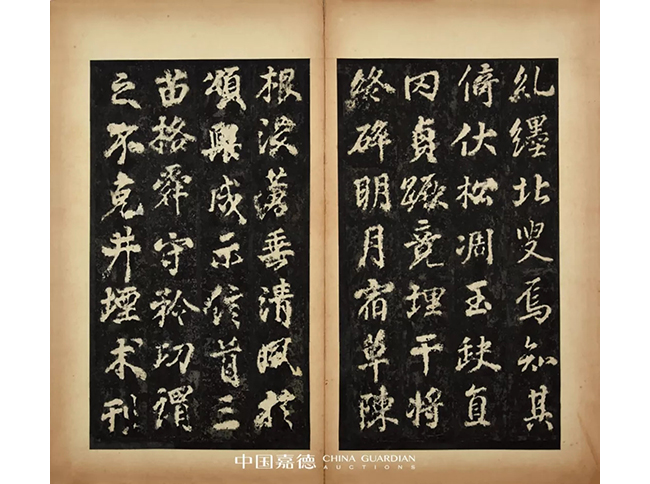 糺纆北叟焉知其
倚伏松凋玉缺
貞蹶竟埋干將
終碎明月宿草陳
根垂清風於
頌興成示信首三
苗格舜守功謂
之不克井堙木刊
中国嘉德 CHINA GUARDIAN
AUCTIONS